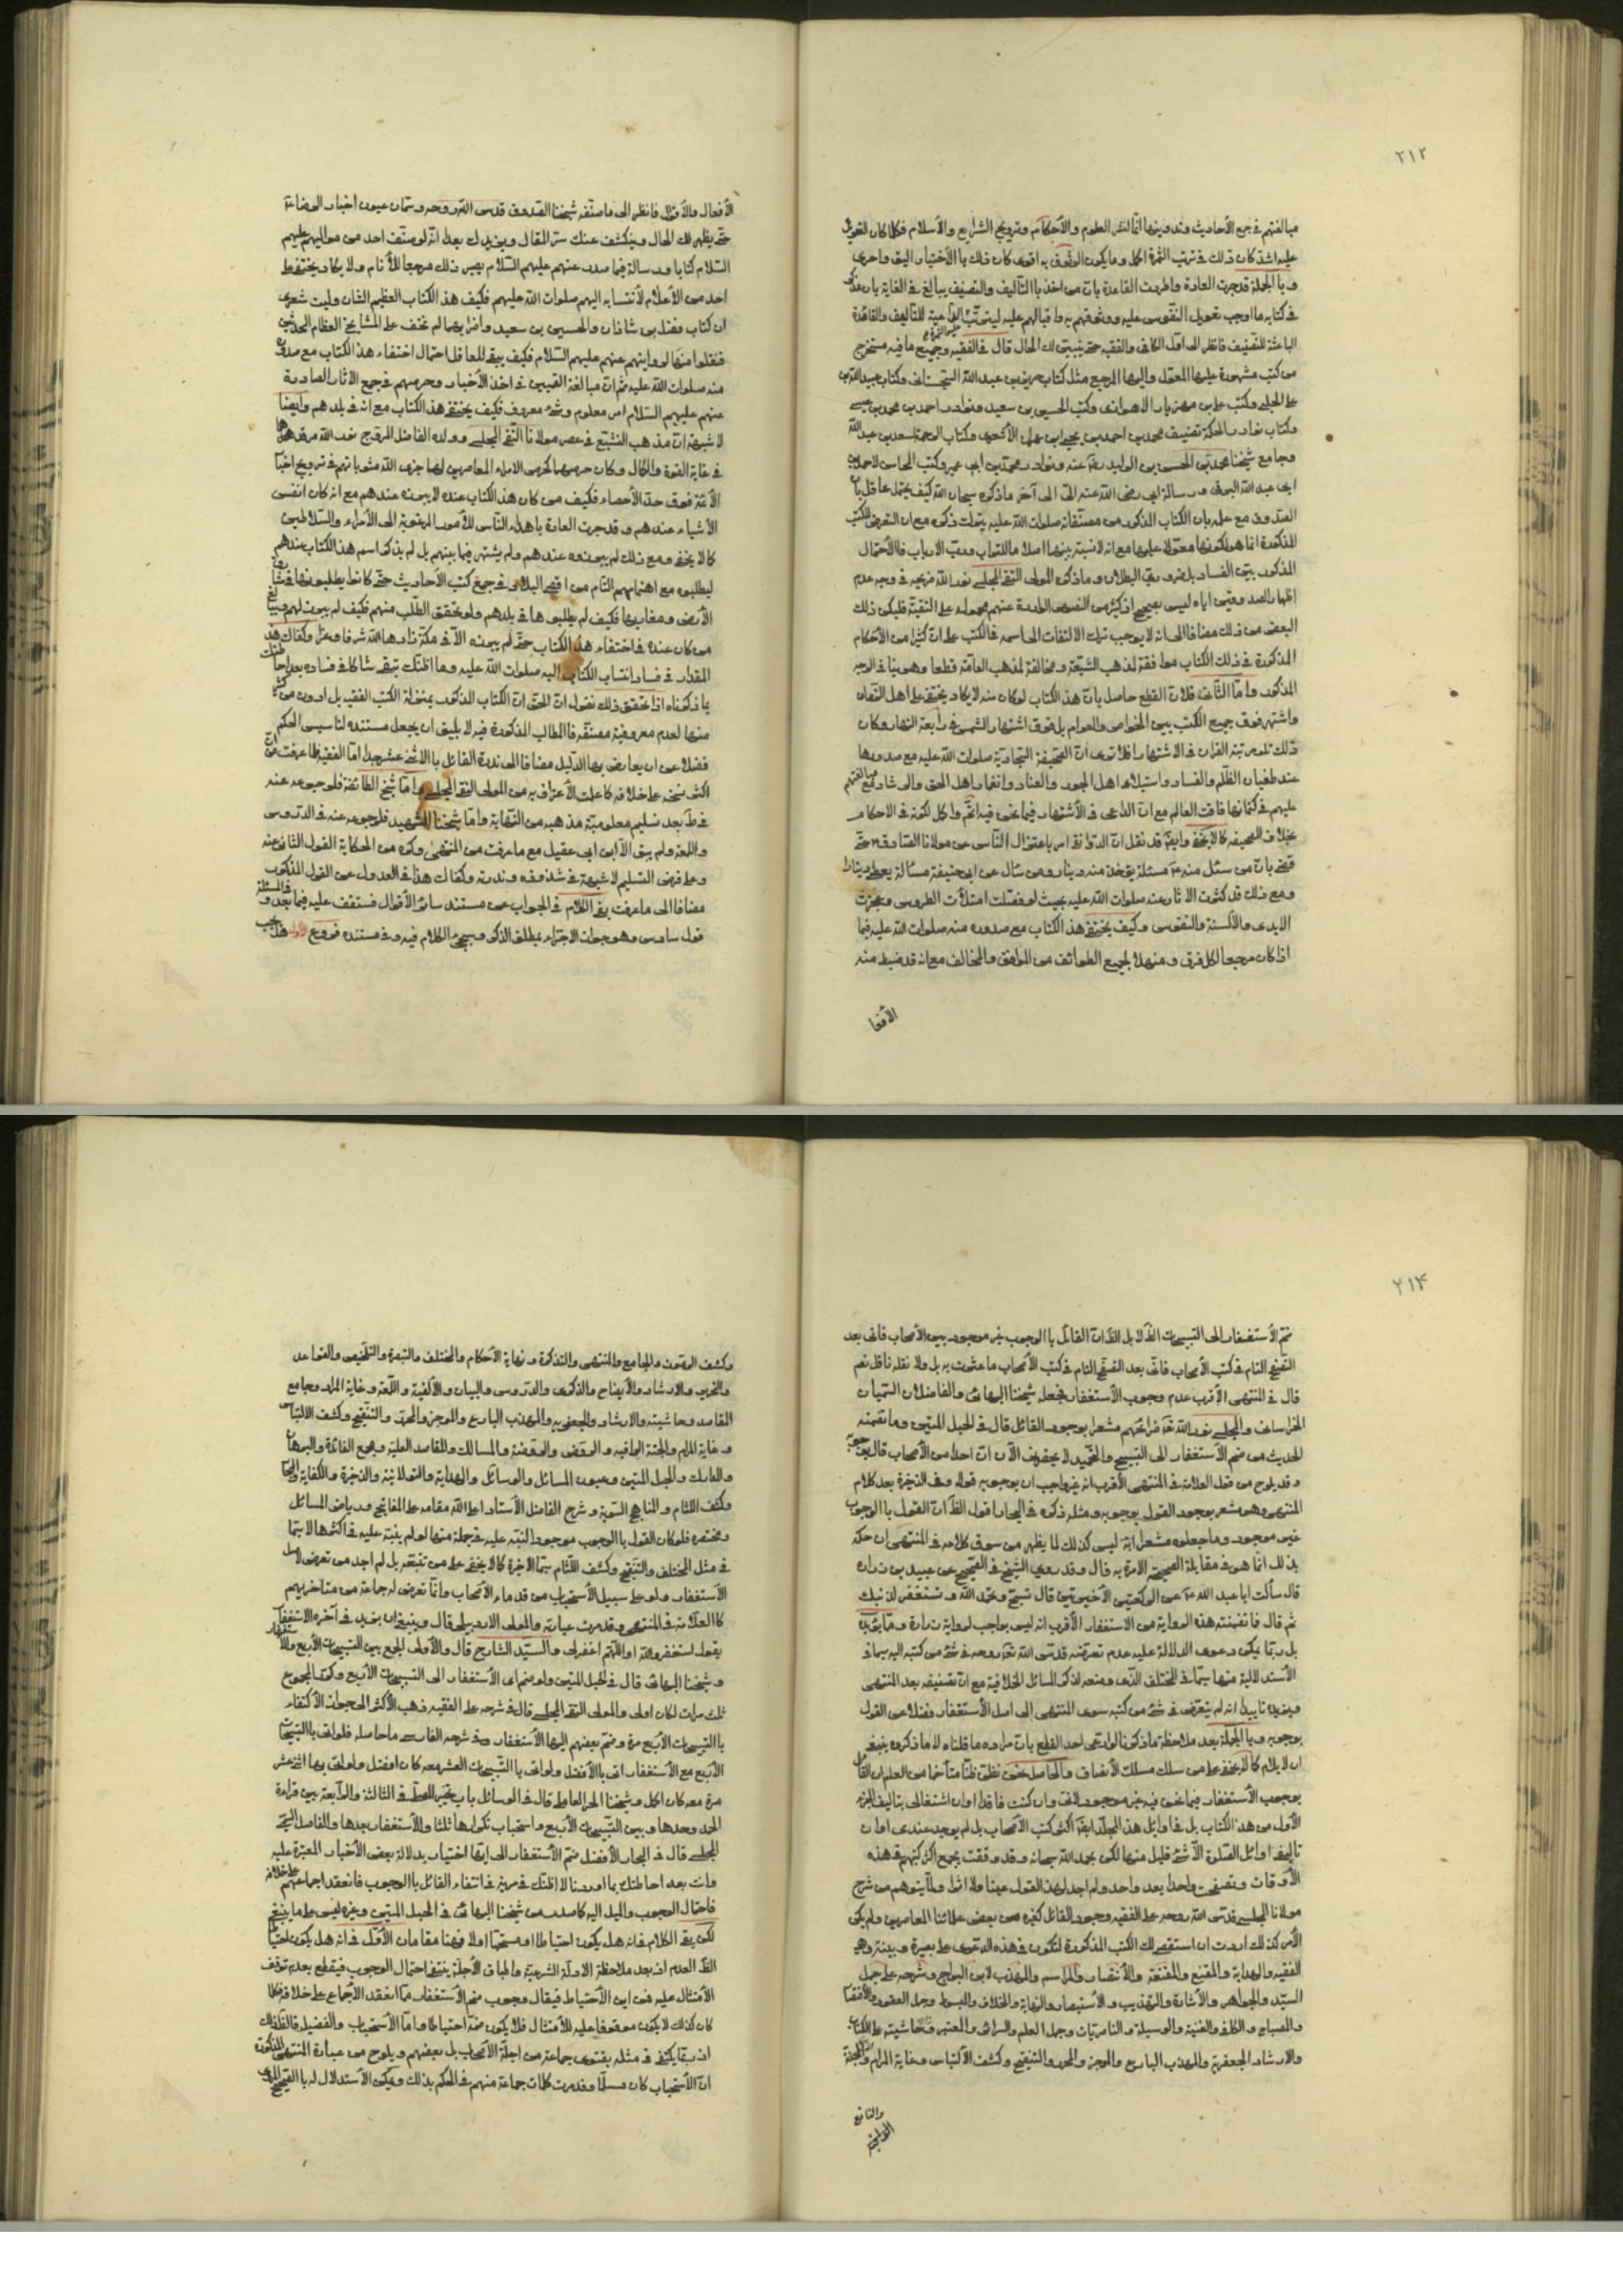 ٢١٢
مبالغتهم في جمع الأحاديث وتدوينها انما لنشر العلوم والأحكام وترويج الشرايع والأسلام فكلما كان
عليه اشد كان ذلك في ترتب الثمرة اكمل وما يكون الوثوق به اقوى كان ذلك بالأختيار اليق واحرى
وبالجملة قد جرت العادة واطردت القاعدة بان من اخذ بالتأليف والتصنيف يبالغ في الغاية بان
في كتابه ما اوجب تعويل النفوس عليه ووثوقهم به واقبالهم عليه للتأليف والفائدة
الباعثة للتصنيف فانظر الى اول الكافي والفقيه حتى يتبين لك الحال قال في الفقيه وجميع ما فيه مستخرج
من كتب مشهورة عليها المعول واليها المرجع مثل كتاب حريز بن عبد الله السجستاني وكتاب عبيد الله بن
على الحلبي وكتب على بن مهزيار الاهوازي وكتب الحسين بن سعيد ونوادر احمد بن محمد بن عيسى
وكتاب نوادر الحكمة تصنيف محمد بن احمد بن يحيى بن عمران الأشعرى وكتاب الرحمة لسعد بن عبد الله
وجامع شيخنا محمد بن الحسن بن الوليد رضى عنه ونوادر محمد بن ابي عمير وكتب المحاسن لاحمد بن
ابي عبد الله البرقي ورسالة ابي رضى الله عنه الىّ الى آخر ما ذكره سبحان الله كيف يحتمل عاقل بان
الصدوق مع علمه بان الكتاب المذكور من مصنفاته صلوات الله عليه يترك ذكره مع ان التعرض للكتب
المذكورة انما هو لكونها معولا عليها مع انه لا نسبة بينهما اصلا ما للتراب ورب الارباب فالأحتمال
المذكور بيّن الفساد بل ضروري البطلان وما ذكره المولى التقى المجلسي نور الله ضريحه في وجه عدم
اظهار الصدوقين اياه ليس بصحيح اذ كثير من النصوص الواردة عنهم محمولة على التقية فليكن ذلك
البعض من ذلك مضافا الى انه لا يوجب ترك الالتفات الى اسمه في الكتب على ان كثيرا من الأحكام
المذكورة في ذلك الكتاب موافقة لمذهب الشيعة ومخالفة لمذهب العامة قطعا وهو ينافي الوجه
المذكور واما الثاني فلان القطع حاصل بان هذا الكتاب لو كان منه لا يكاد يختفى على اهل الزمان
واشتهر فوق جميع الكتب بين الخواص والعوام بل فوق اشتهار الشمس في رابعة النهار وكان
ذلك تلو مرتبة القران في الاشتهار افلا ترى ان الصحيفة السجادية صلوات الله عليه مع صدورها
عند طغيان الظلم والفساد واستيلاء اهل الجور والعناد وانغمار اهل الحق والرشاد مع مبالغتهم
عليهم في كتمانها فاقت العالم مع ان الداعى في الأشتهار فيما نحن فيه اتم واكمل لكونه في الاحكام
بخلاف الصحيفة كما لا يخفى وايضا قد نقل ان الدوانقى امر باعتزال الناس عن مولانا الصادق ع حتى
قضى بان من سئل منه ع مسئلة يؤخذ منه دينار ومن سأل عن ابي حنيفة مسألة يعطى دينارا
ومع ذلك قد كثرت الاثار عنه صلوات الله عليه بحيث لو فصلت امتلأت الطروس وعجزت
الايدى والألسنة والنفوس وكيف يختفى هذا الكتاب مع صدوره منه صلوات الله عليه فيما
اذا كان مرجعا لكل فرق ومنهلا لجميع الطوائف من الموافق والمخالف مع انه قد ضبط منه
الأفعا
الأفعال والأقوال فانظر الى ما صنفه شيخنا الصدوق قدس الله روحه وسماه عيون اخبار الرضا ع
حتى يظهر لك الحال وينكشف عنك ستر المقال ويزيدك بعدا انه لو صنف احد من مواليهم عليهم
السلام كتابا ورسالة فيما صدر عنهم عليهم السلام يصير ذلك مرجعا للأنام ولا يكاد يختفى على
احد من الأعلام لأنتسابه اليهم صلوات الله عليهم فكيف هذا الكتاب العظيم الشان وليت شعرى
ان كتاب فضل بن شاذان والحسين بن سعيد واضرابهما لم تختف على المشايخ العظام المحدثين
فنقلوا منها لروايتهم عنهم عليهم السلام فكيف يبقى للعاقل احتمال اختفاء هذا الكتاب مع صدوره
منه صلوات الله عليه ثم ان مبالغة القميين في اخذ الأخبار وحرصهم في جمع الاثار الصادرة
عنهم عليهم السلام امر معلوم وشىء معروف فكيف يختفى هذا الكتاب مع انه في بلدهم وايضا
لا شبهة ان مذهب التشيع في عصر مولانا التقى المجلسي وولده الفاضل المروج نور الله مرقدهما
في غاية القوة والكمال وكان حرصهما كحرص الامراء المعاصرين لهما جزى الله مثوباتهم في ترويج اخبار
الأئمة فوق حد الأحصاء فكيف من كان هذا الكتاب عنده لا يبرزه عندهم مع انه كان انفس
الأشياء عندهم وقد جرت العادة باهداء الناس للأمور المرغوبة الى الأمراء والسلاطين
كما لا يخفى ومع ذلك لم يبرزه عندهم ولم يشتهر فيما بينهم بل لم يذكر اسم هذا الكتاب عندهم
ليطلبوه مع اهتمامهم التام من اقصى البلاد في جمع كتب الأحاديث حتى كانوا يطلبونها في مشارق
الأرض ومغاربها فكيف لم يطلبوها في بلدهم ولو تحقق الطلب منهم فكيف لم يبرز لهم
من كان عنده في اختفاء هذا الكتاب حتى لم يبرزه الا في مكة زادها الله شرفا وعزا وكفاك هذا
المقدار في فساد انتساب الكتاب اليه صلوات الله عليه وما اظنك تبقى شاكا في فساده بعد احاطتك
بما ذكرناه اذا تحقق ذلك نقول ان الحق ان الكتاب المذكور بمنزلة الكتب الفقيه بل ادون من كثير
منها لعدم معروفية مصنفه فالمطالب المذكورة فيه لا يليق ان يجعل مستنده لتأسيس الحكم
فضلا عن ان يعارض بها الدليل مضافا الى ندرة القائل بالاثنى عشر جدا اما الفقيه فلما عرفت من
اكثر نسخه على خلافه كما علمت الأعتراف به من المولى التقى المجلسي واما شيخ الطائفة فلرجوعه عنه
في ط بعد تسليم معلومية مذهبه من النهاية واما شيخنا الشهيد فلرجوعه عنه في الدروس
واللمعة ولم يبق الا ابن ابي عقيل مع ما عرفت من المنتهى وكره من الحكاية القول الثاني عنه
وعلى فرض التسليم لا شبهة في شذوذه وندرته وكفاك هذا في العدول عن القول المذكور
مضافا الى ما عرفت بقى الكلام في الجواب عن مستند سائر الأقوال فستقف عليه فيما بعد وفي المسئلة
قول سادس وهو جواز الاجتزاء بمطلق الذكر وسيجىء الكلام فيه وفي مستنده فروع الأول هل يجب
٢١٤
ضم الأستغفار الى التسبيحات الظ لا بل الظ ان القائل بالوجوب غير موجود بين الأصحاب فاني بعد
التتبع التام في كتب الأصحاب فاني بعد التتبع التام في كتب الأصحاب ما عثرت به بل ولا نقله ناقل نعم
قال في المنتهى الأقرب عدم وجوب الأستغفار فجعله شيخنا البهائى والفاضلان السميان
الخراسانى والمجلسي نور الله تعالى مراقدهم مشعرا بوجود القائل قال في الحبل المتين وما تضمنه
الحديث من ضم الأستغفار الى التسبيح والتحميد لا يحضرني الآن ان احدا من الأصحاب قال بوجوبه
وقد يلوح من قول العلامة في المنتهى الأقرب انه غير واجب ان بوجوبه قولا وفى الذخيرة بعد كلام
المنتهى وهو مشعر بوجود القول بوجوبه ومثله ذكره في البحار اقول الظ ان القول بالوجوب
غير موجود وما جعلوه مشعرا به ليس كذلك لما يظهر من سوق كلامه في المنتهى ان حكمه
بذلك انما هو في مقابلة الصحيحة الامرة به قال وقد روى الشيخ في الصحيح عن عبيد بن زرارة
قال سألت ابا عبد الله ع عن الركعتين الأخيرتين قال تسبح وتحمد الله وتستغفر لذنبك
ثم قال فما تضمنته هذه الرواية من الاستغفار الأقرب انه ليس بواجب لرواية زرارة ومما يؤيده
بل ربما يمكن دعوى الدلالة عليه عدم تعرضه قدس الله تعالى روحه في شىء من كتبه اليه سيما في
الأستدلالية منها سيما في المختلف الذى وضعه لذكر المسائل الخلافية مع ان تصنيفه بعد المنتهى
ويزيده تاييدا انه لم يتعرض في شىء من كتبه سوى المنتهى الى اصل الأستغفار فضلا عن القول
بوجوبه وبالجملة بعد ملاحظة ما ذكرنا لو ادعى احد القطع بان مراده ما قلناه لا ما ذكروه ينبغى
ان لا يلام كما لا يخفى على من سلك مسلك الأنصاف والحاصل نحن نظن ظنا متأخما من العلم ان القائل
بوجوب الأستغفار فيما نحن فيه غير موجود وان كنت فاقدا وان اشتغالى بتاليف الجزء
الأول من هذا الكتاب بل في اوائل هذا المجلد ايضا اكثر كتب الأصحاب بل لم يوجد عندى اوان
تاليف اوائل الصلوة الا شىء قليل منها لكن بحمد الله سبحانه وقد وفقت بجمع اكثر كتبهم في هذه
الأوقات وتصفحت واحدا بعد واحد ولم اجد لهذا القول عينا ولا اثرا ولما يتوهم من شرح
مولانا المجلسي قدس الله روحه على الفقيه وجود القائل كغيره من بعض علمائنا المعاصرين ولم يكن
الأمر كذلك اردت ان استقصى لك الكتب المذكورة لتكون في هذه الدعوى على بصيرة وبينة وهى
الفقيه والهداية والمقنع والمقنعة والأنتصار والمراسم والمهذب لابن البراج وشرحه على جمل
السيد والجواهر والأشارة والتهذيب والأستبصار والنهاية والخلاف والمبسوط وجمل العقود والأقتصاد
والمصباح والكافى والغنية والوسيلة والناصريات وجمل العلم والسرائر والمعتبر وحاشيته على الكتاب
والارشاد الجعفرية والمهذب البارع والموجز والمحرر والتنقيح وكشف الألتباس وغاية المرام
والنافع
وكشف الرموز والجامع والمنتهى والتذكرة ونهاية الأحكام والمختلف والتبصرة والتلخيص والقواعد
والتحرير والارشاد والأيضاح والذكرى والدروس والبيان والألفية واللمعة وغاية المراد وجامع
المقاصد وحاشيته والارشاد والجعفريه والمهذب البارع والموجز والمحرر والتنقيح وكشف الالتباس
وغاية المرام والجنة الواقية والروض والروضة والمسالك والمقاصد العلية ومجمع الفائدة والبرهان
والمدارك والحبل المتين وعيون المسائل والوسائل والهداية والذخيرة والكفاية والبحار
وكشف اللثام والمناهج السوية وشرح الفاضل الأستاد اعلى الله مقامه على المفاتيح ورياض المسائل
ومختصره فلو كان القول بالوجوب موجودا لنبه عليه في جملة منها لو لم ينبه عليه في اكثرها لا سيما
في مثل المختلف والتنقيح وكشف اللثام سيما الاخيرة كما لا يخفى على من تتبعه بل لم اجد من تعرض لاصل
الأستغفار ولو على سبيل الأستحباب من قدماء الأصحاب وانما تعرض له جماعة من متاخريهم
كالعلامة في المنتهى وقد مرت عبارته والمولى الاردبيلى قال وينبغى ان يزيد في آخره الاستغفار
بقول استغفر الله او اللهم اغفر لى والسيد الشارح قال والأولى الجمع بين التسبيحات الأربع والأستغفار
وشيخنا البهائى قال في الحبل المتين ولو ضم اى الأستغفار الى التسبيحات الأربع وكرر المجموع
ثلث مرات لكان اولى والمولى التقى المجلسي قال في شرحه على الفقيه ذهب الأكثر الى جواز الأكتفاء
بالتسبيحات الأربع مرة وضم بعضهم اليها الأستغفار وفى شرحه الفارسى ما حاصله فلو اتى بالتسبيحات
الأربع مع الأستغفار اتى بالأفضل ولو اتى بالتسبيحات العشر معه كان افضل ولو اتى بها اثنى عشر
مرة معه كان اكمل وشيخنا الحر العاملى قال في الوسائل باب تخير المصلى في الثالثة والرابعة بين قراءة
الحمد وحدها وبين التسبيحات الأربع واستحباب تكرارها ثلثا والأستغفار بعدها والفاضل السمى
المجلسي قال في البحار الأفضل ضم الأستغفار الى ايها اختار بدلالة بعض الأخبار المعتبرة عليه
وانت بعد احاطتك بما اوردنا لا اظنك في مرية في انتفاء القائل بالوجوب فانعقد اجماعهم على خلافه
فاحتمال الوجوب والميل اليه كما صدر من شيخنا البهائى في الحبل المتين وغيره ليس على ما ينبغى
لكن بقى الكلام في انه هل يكون احتياطا او مستحبا اولا فهنا مقامان الأول في انه هل يكون احتياطا
الظ العدم اذ بعد ملاحظة الادلة الشرعية واطباق الأجلة ينتفى احتمال الوجوب فيقطع بعدم توقف
الأمتثال عليه فمن اين الأحتياط فيقال وجوب ضم الأستغفار مما انعقد الأجماع على خلافه فكلما
كان كذلك لا يكون موقوفا عليه للأمتثال فلا يكون ضمه احتياطا واما الأستحباب والفضيلة فالظ ذلك
اذ ربما يكتفى في مثله بفتوى جماعة من اجلة الأصحاب بل بعضهم ويلوح من عبارة المنتهى المذكورة
ان الأستحباب كان مسلما وقد مرت كلمات جماعة منهم في الحكم بذلك ويمكن الأستدلال له بالصحيح المروى